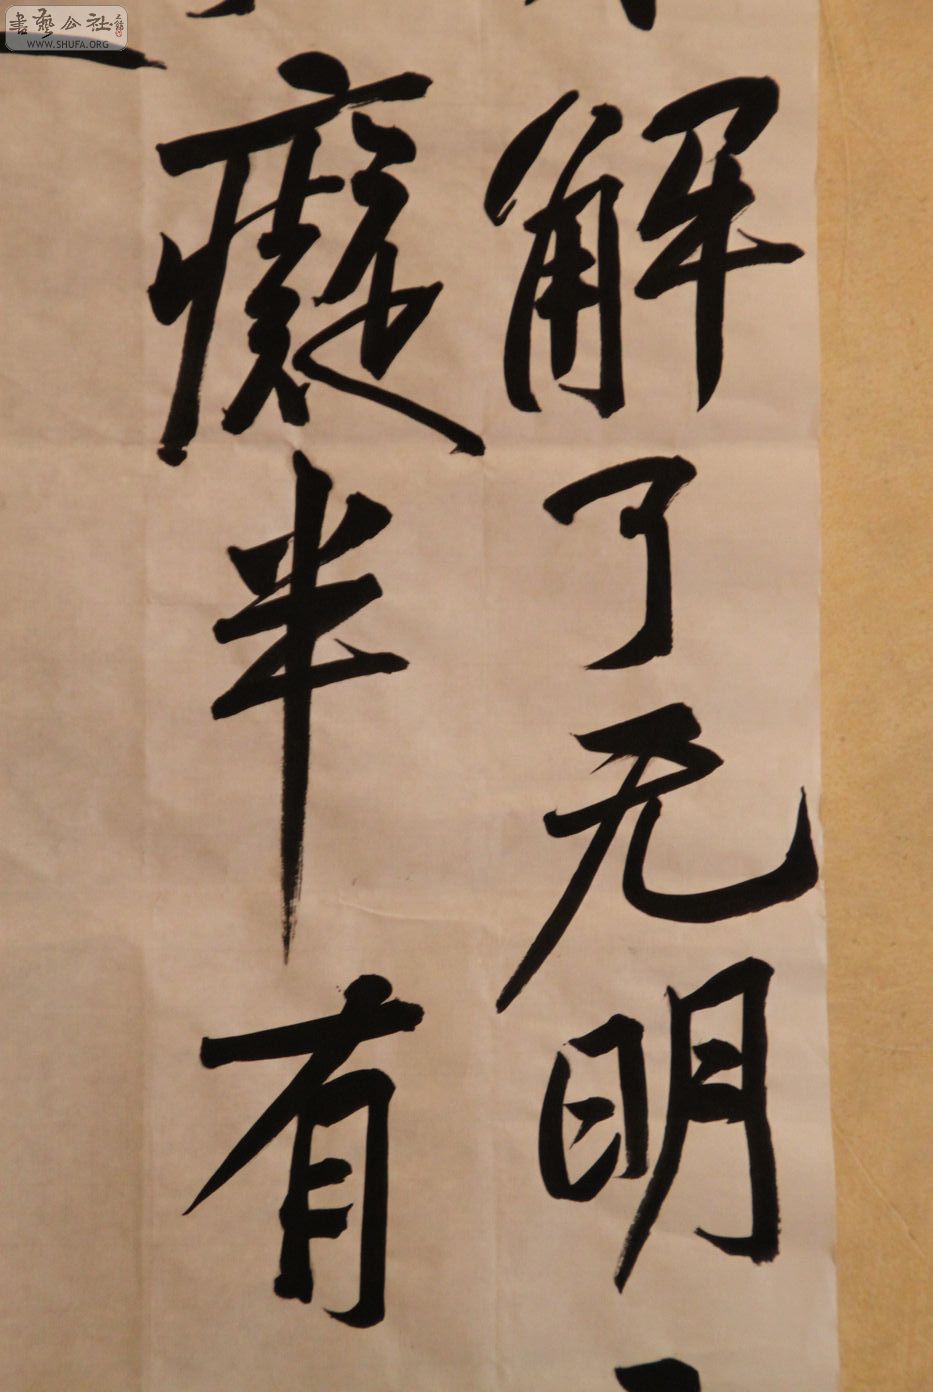 解了无明
癡半有
書藝公社
WWW.SHUFA.ORG